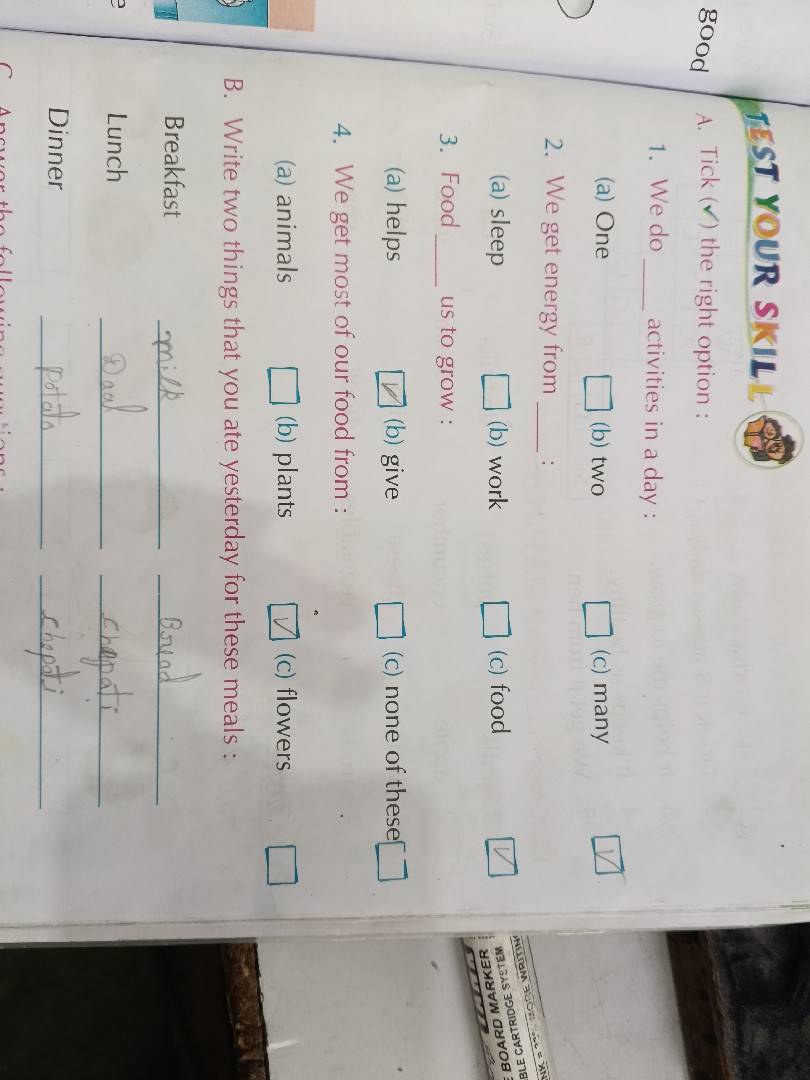 good
TEST YOUR SKILL
A. Tick (✓) the right option :
1. We do ____ activities in a day :
(a) One ☐ (b) two ☐ (c) many ☑
2. We get energy from ____ :
(a) sleep ☐ (b) work ☐ (c) food ☑
3. Food ____ us to grow :
(a) helps ☑ (b) give ☐ (c) none of these ☐
4. We get most of our food from :
(a) animals ☐ (b) plants ☑ (c) flowers ☐
B. Write two things that you ate yesterday for these meals :
Breakfast milk Bread
Lunch Daal chappati
Dinner potato chepati
C Answer the following questions :
BOARD MARKER
BLE CARTRIDGE SYSTEM